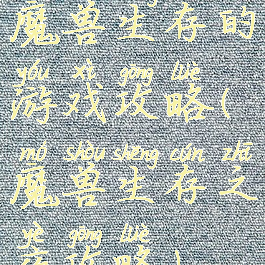 魔兽生存的
yóu xì gōng lüè
游戏攻略(
mó shòu shēng cún zhī
魔兽生存之
gōng lüè
攻略)